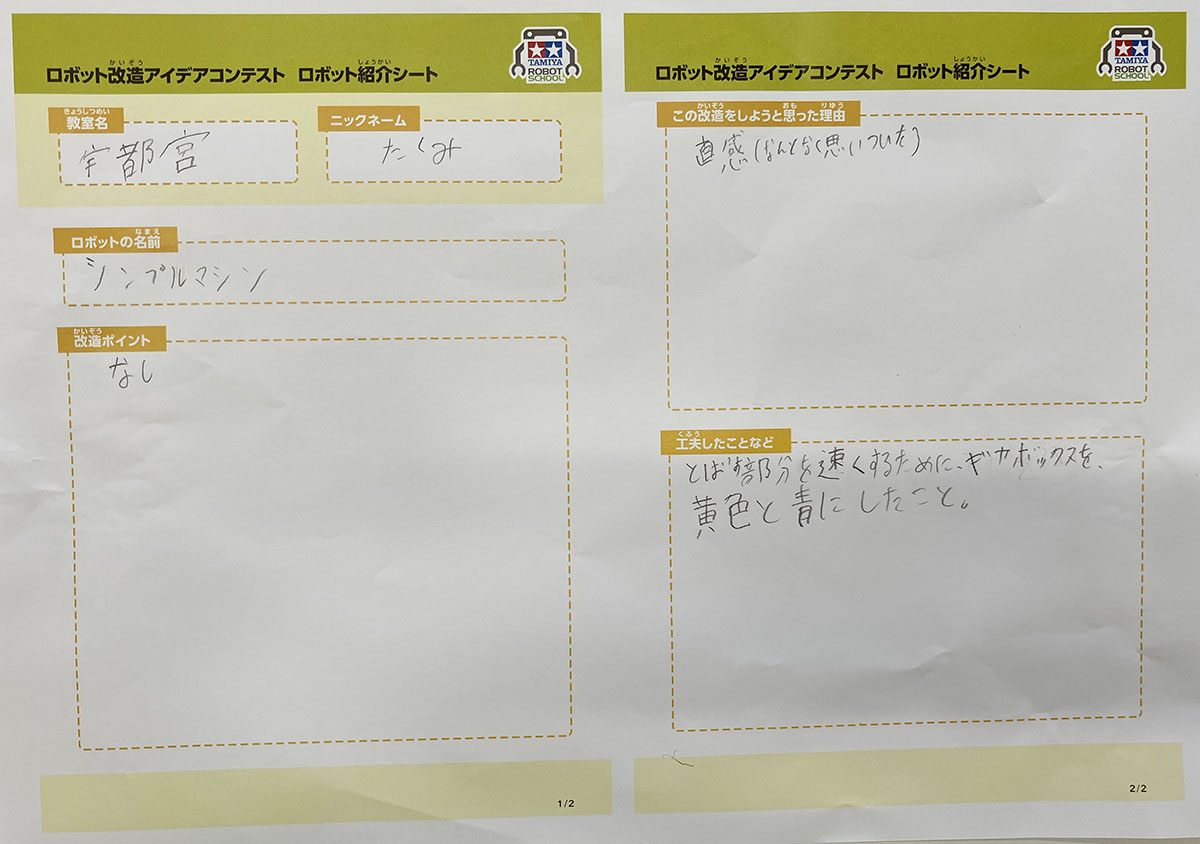 ロボット改造アイデアコンテスト ロボット紹介シート
かいぞう
しょうかい
TAMIYA
ROBOT
SCHOOL
きょうしつめい
教室名
宇都宮
ニックネーム
たくみ
なまえ
ロボットの名前
シンプルマシン
かいぞう
改造ポイント
なし
1/2
ロボット改造アイデアコンテスト ロボット紹介シート
かいぞう
しょうかい
TAMIYA
ROBOT
SCHOOL
かいぞう おも りゆう
この改造をしようと思った理由
直感(なんとなく思いついた)
くふう
工夫したことなど
とばす部分を速くするために、ギヤボックスを、
黄色と青にしたこと。
2/2